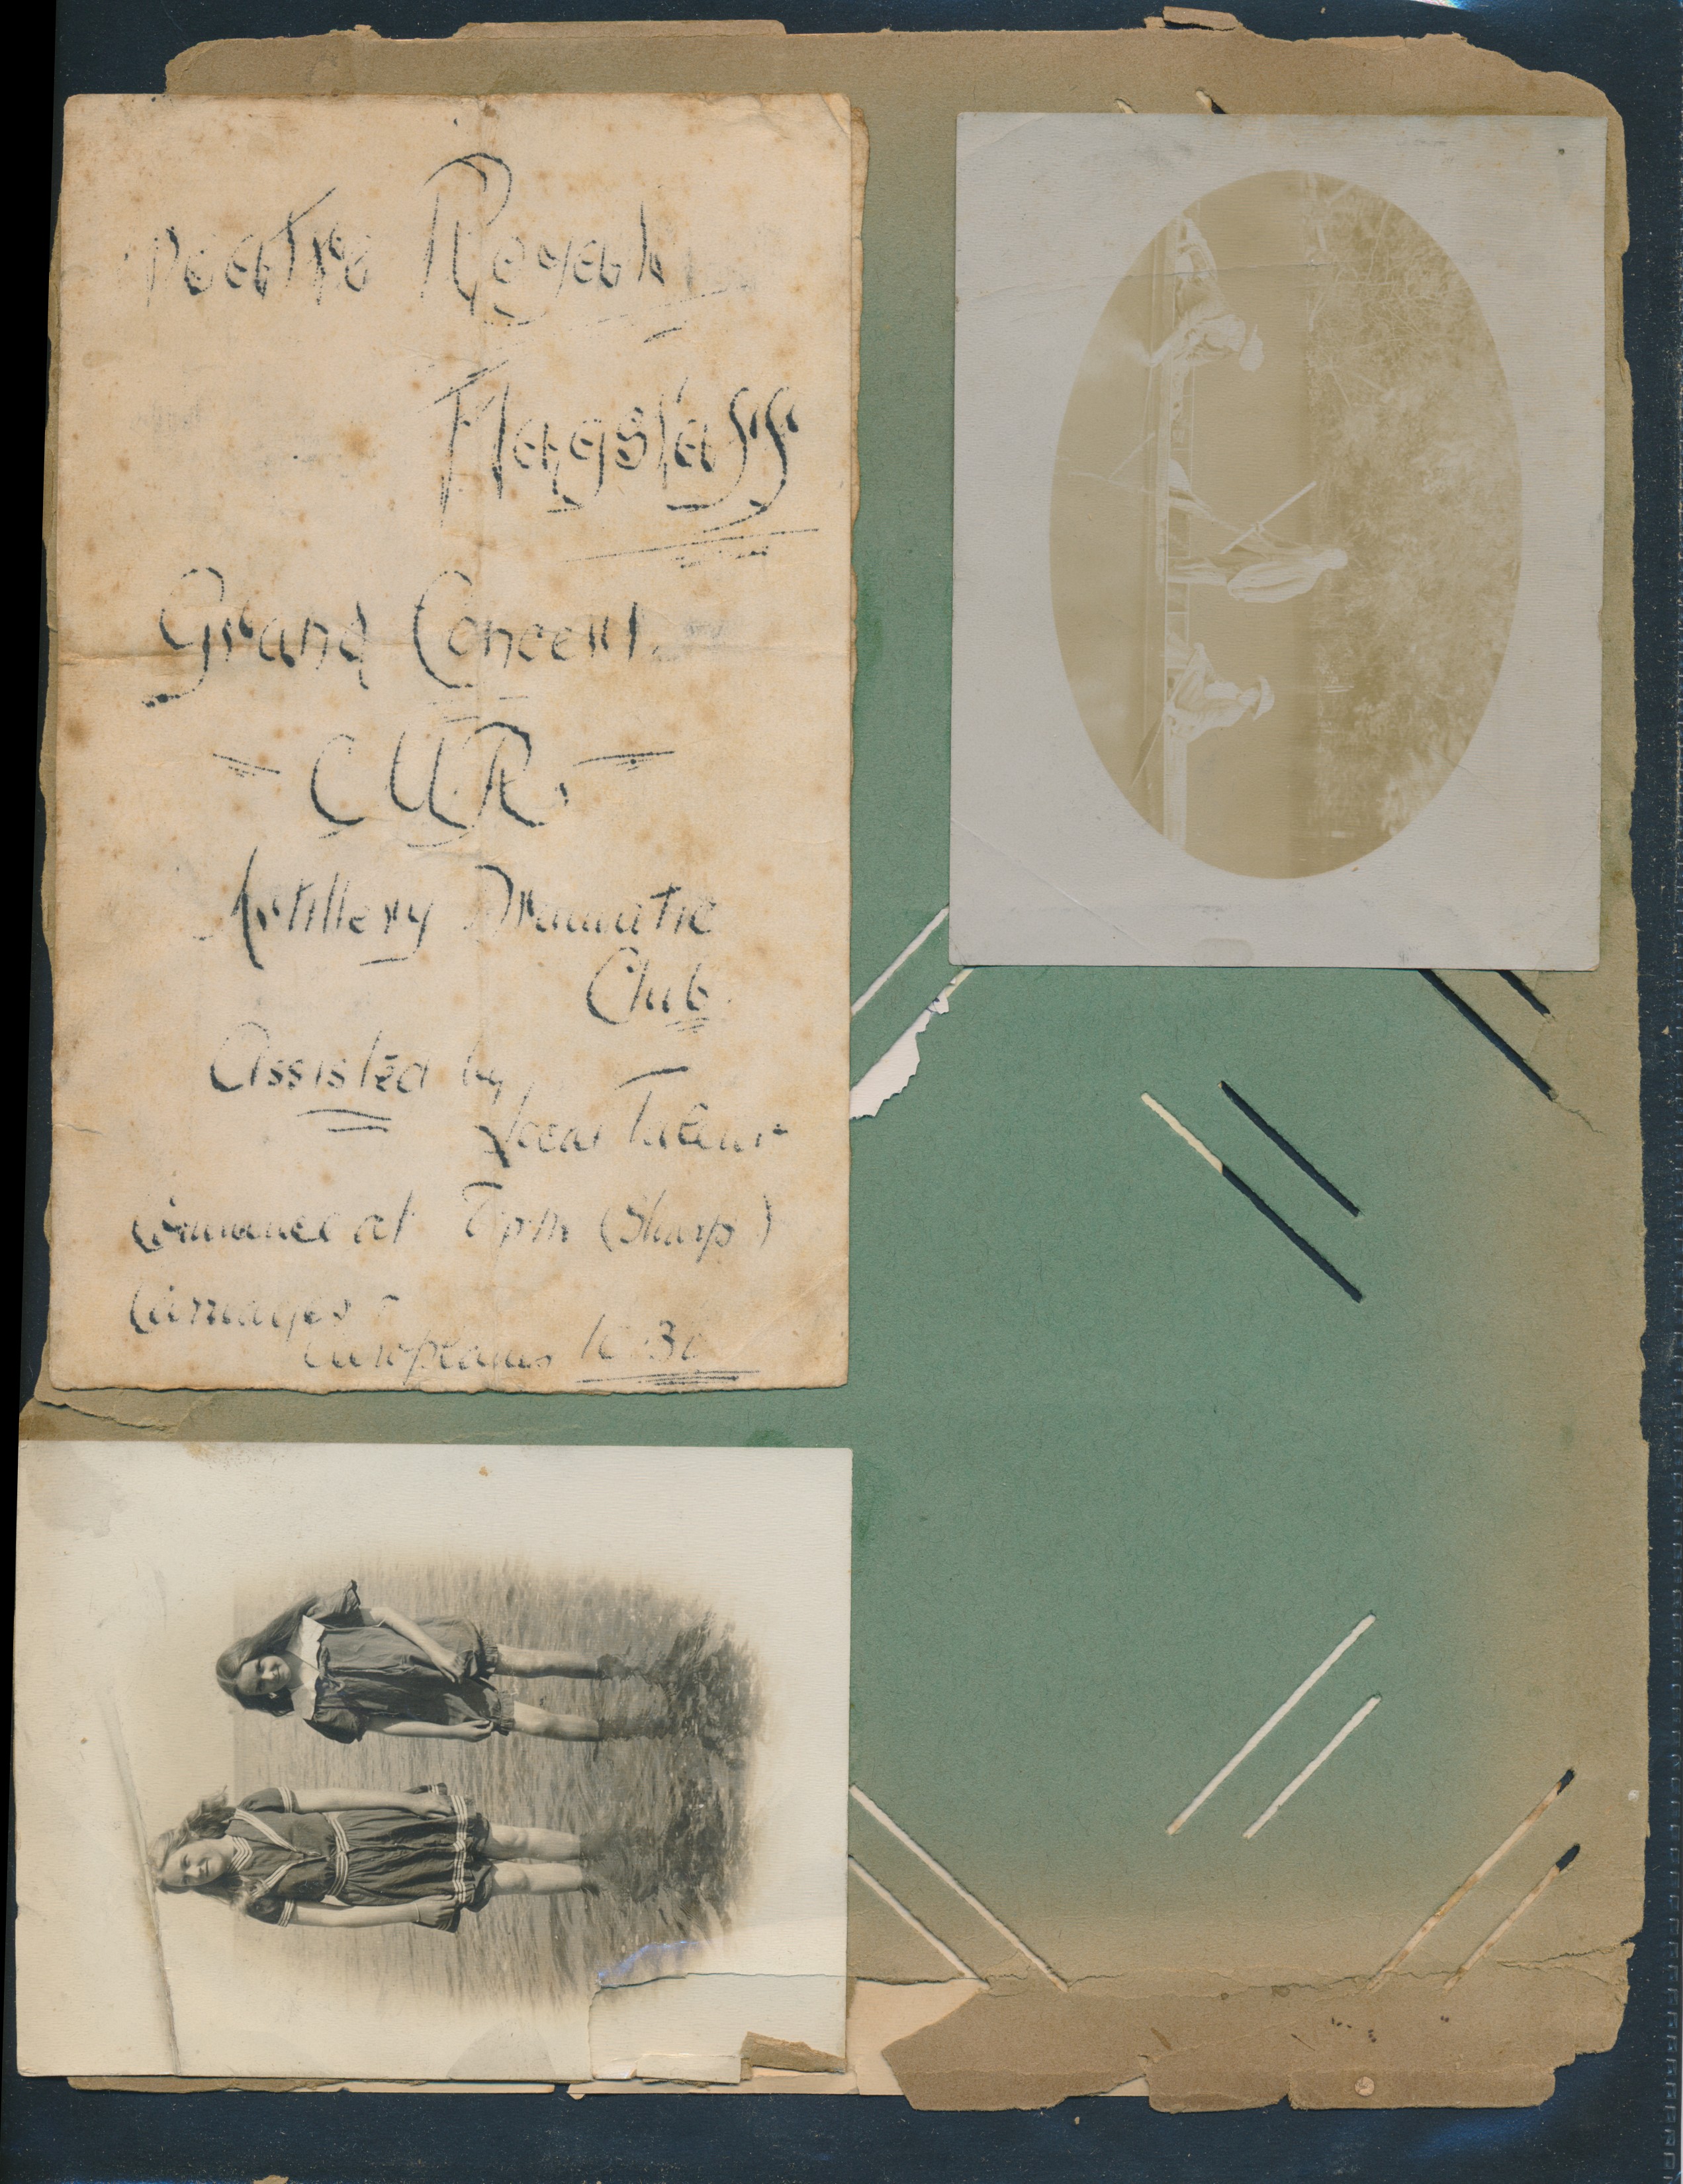 Theatre Royal
Flagstaff
Grand Concert.
Artillery Dramatic
Club.
Assisted by
Local Talent
Commence at 8 pm (Sharp)
Carriages &
Europeans 10.30